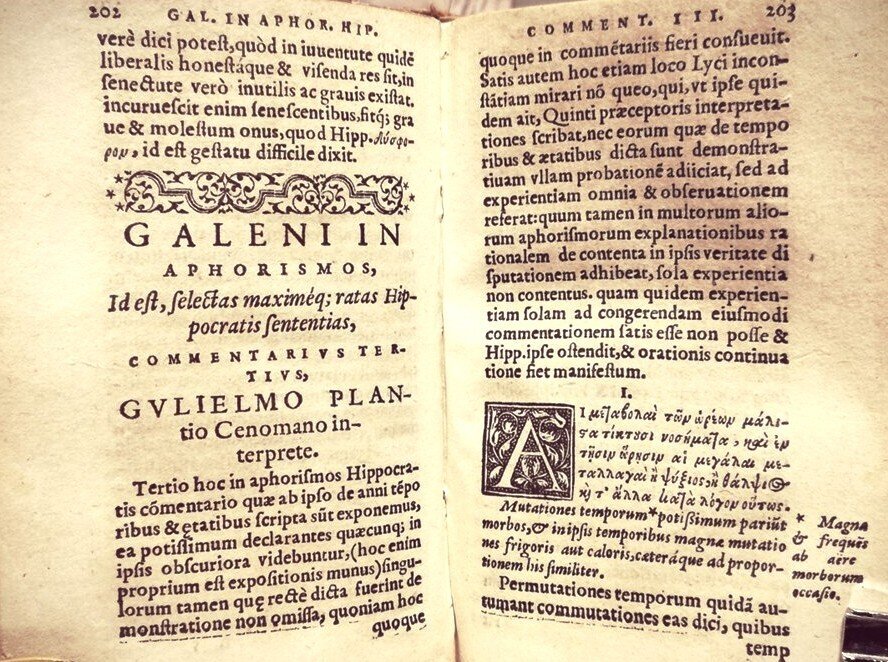 202 GAL. IN APHOR. HIP.
verè dici poteſt,quòd in iuuentute quidē
liberalis honeſtáque & viſenda res ſit,in
ſenectute verò inutilis ac grauis exiſtat.
incurueſcit enim ſeneſcentibus,fitq́; gra
ue & moleſtum onus,quod Hipp.δύσφο-
ρον, id eſt geſtatu difficile dixit.
GALENI IN
APHORISMOS,
Id eſt, ſelectas maximéq; ratas Hip-
pocratis ſententias,
COMMENTARIVS TER-
TIVS,
GVLIELMO PLAN-
tio Cenomano in-
terprete.
Tertio hoc in aphoriſmos Hippocra-
tis cōmentario quæ ab ipſo de anni tēpo
ribus & ętatibus ſcripta sūt exponemus,
ea potiſſimum declarantes quæcunq; in
ipſis obſcuriora videbuntur,(hoc enim
proprium eſt expoſitionis munus)ſingu-
lorum tamen quę rectè dicta fuerint de
monſtratione non omiſſa, quoniam hoc
quoque
COMMENT. III. 203
quoque in commētariis fieri conſueuit.
Satis autem hoc etiam loco Lyci incon-
ſtātiam mirari nō queo,qui,vt ipſe qui-
dem ait, Quinti præceptoris interpreta-
tiones ſcribat,nec eorum quæ de tempo
ribus & ætatibus dicta ſunt demonſtra-
tiuam vllam probationē adiiciat, ſed ad
experientiam omnia & obſeruationem
referat:quum tamen in multorum alio-
rum aphoriſmorum explanationibus ra
tionalem de contenta in ipſis veritate di
ſputationem adhibeat, ſola experientia
non contentus. quam quidem experien-
tiam ſolam ad congerendam eiuſmodi
commentationem ſatis eſſe non poſſe &
Hipp.ipſe oſtendit,& orationis continua
tione fiet manifeſtum.
I.
ΑΙ μεταβολαὶ τῶν ὡρέων μάλι-
ϛα τίκτουσι νοσήματα, καὶ ἐν
τῇσιν ὥρῃσιν αἱ μεγάλαι με-
ταλλαγαὶ ἢ ψύξιος, ἢ θάλψιος
κỳ τ' ἄλλα κατὰ λόγον οὕτως.
Mutationes temporum * potiſſimum pariūt
morbos,& in ipsis temporibus magnæ mutatio
nes frigoris aut caloris,cæteráque ad propor-
tionem his ſimiliter.
* Magnæ
& frequēs
ab aëre
morborum
occaſio.
Permutationes temporum quidā au-
tumant commutationes eas dici, quibus
temp